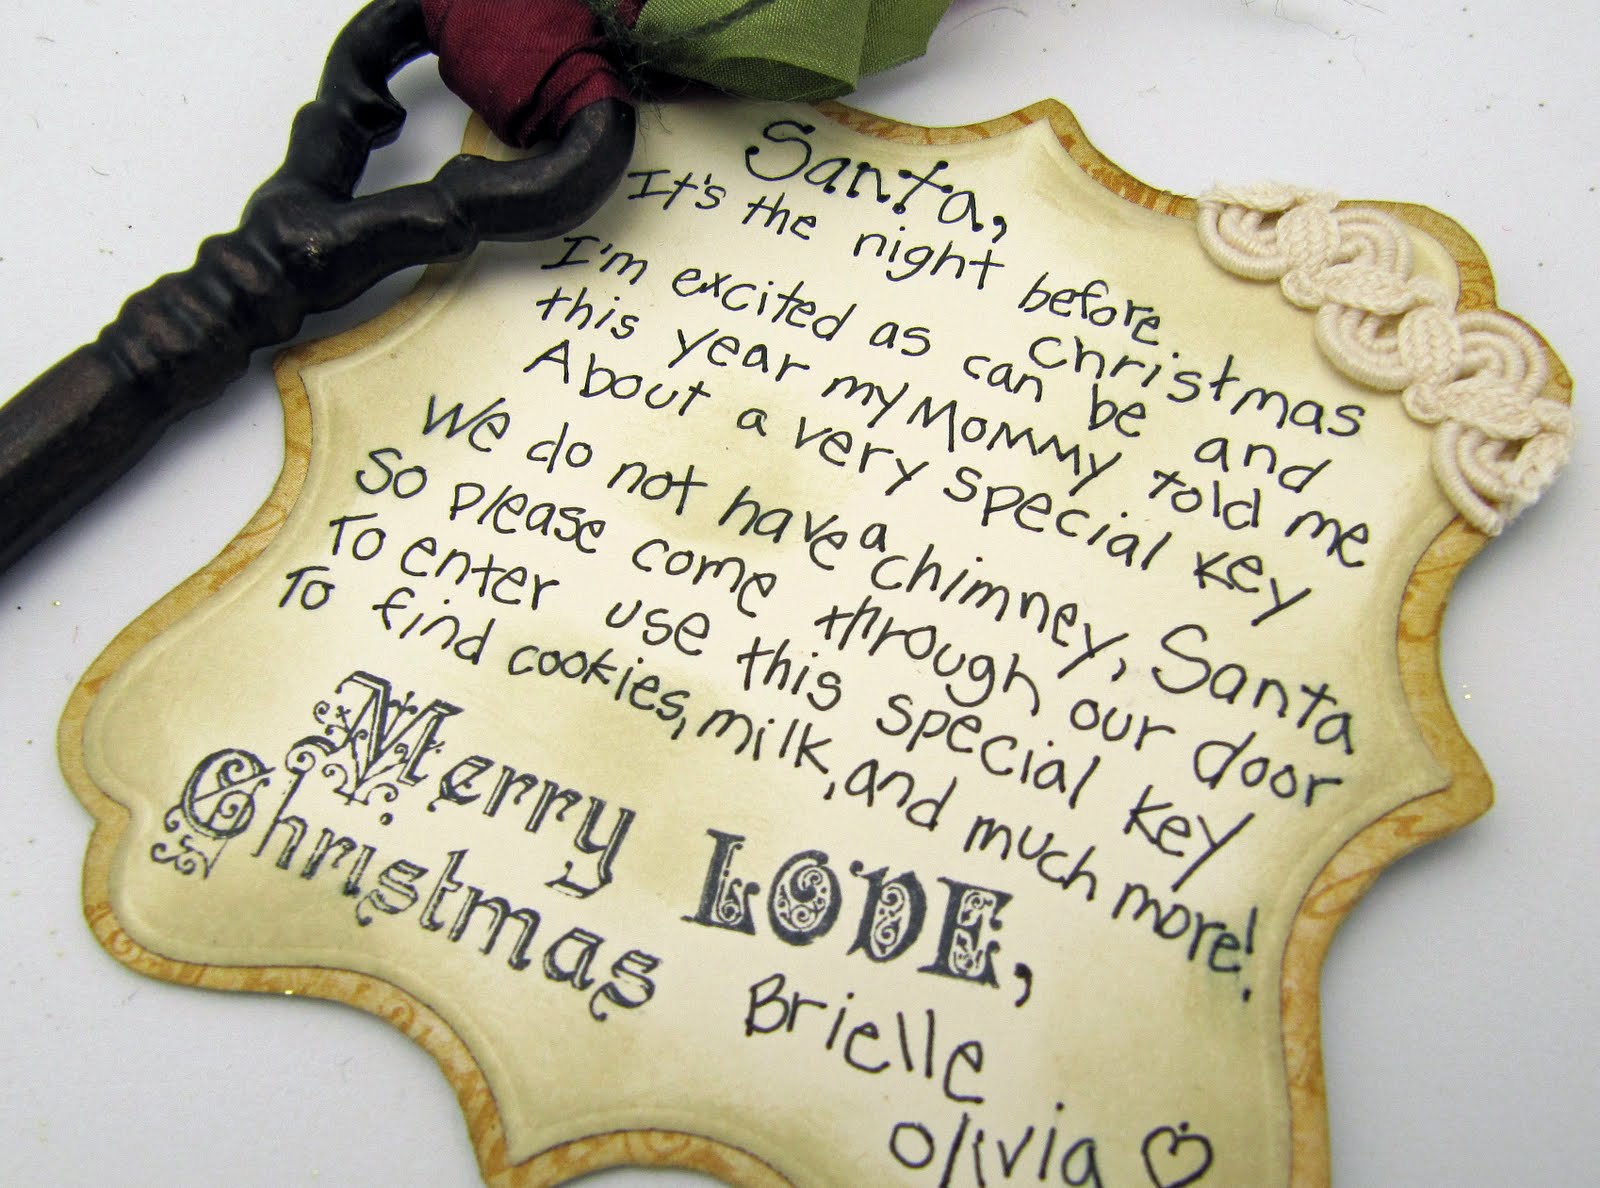 Santa,
It's the night before Christmas
I'm excited as can be and
this year my Mommy told me
About a very special key
We do not have a chimney, Santa
So please come through our door
To enter use this special key
To find cookies, milk, and much more!
Merry
Christmas
LOVE,
Brielle
Olivia